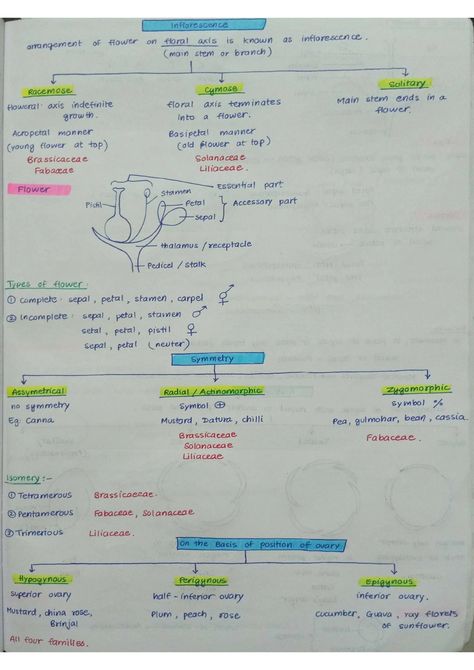 Inflorescence
arrangement of flower on floral axis is known as inflorescence.
(main stem or branch)
Racemose
floweral axis indefinite
growth.
Acropetal manner
(young flower at top)
Brassicaceae
Fabaceae
Cymose
floral axis terminates
into a flower.
Basipetal manner
(old flower at top)
Solanaceae
Liliaceae.
Solitary
Main stem ends in a
flower.
Flower
Essential part
Stamen
Pistil
Petal
Sepal
Accessory part
thalamus / receptacle
Pedicel / stalk
Types of flower:
① complete: sepal, petal, stamen, carpel ⚥
② Incomplete: sepal, petal, stamen ♂
setal, petal, pistil ♀
sepal, petal (neuter)
Symmetry
Assymetrical
no symmetry
Eg: Canna
Radial / Actinomorphic
Symbol ⊕
Mustard, Datura, chilli
Brassicaceae
Solanaceae
Liliaceae
Zygomorphic
symbol %
Pea, gulmohar, bean, cassia.
Fabaceae.
Isomery:-
① Tetramerous Brassicaeceae.
② Pentamerous Fabaceae, Solanaceae
③ Trimerious Liliaceae.
On the Basis of position of ovary
Hypogynous
superior ovary
Mustard, china rose,
Brinjal
All four families.
Perigynous
half-inferior ovary
Plum, peach, rose
Epigynous
inferior ovary.
cucumber, Guava, ray florets
of sunflower.